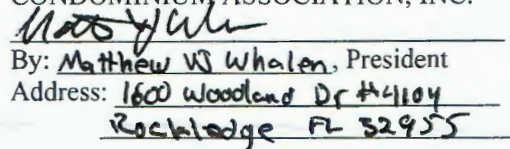 CONDOMINIUM ASSOCIATION, INC.
By: Matthew W Whalen, President
Address: 1600 Woodland Dr #4104
Rockledge FL 32955